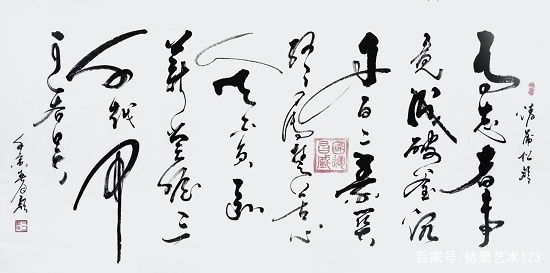 清蒲松龄
有志者事
竟成破釜沉
舟百二秦关
终属楚苦心
人天不负卧
薪尝胆三
千越甲
可吞吴
百家号/楮墨艺术123